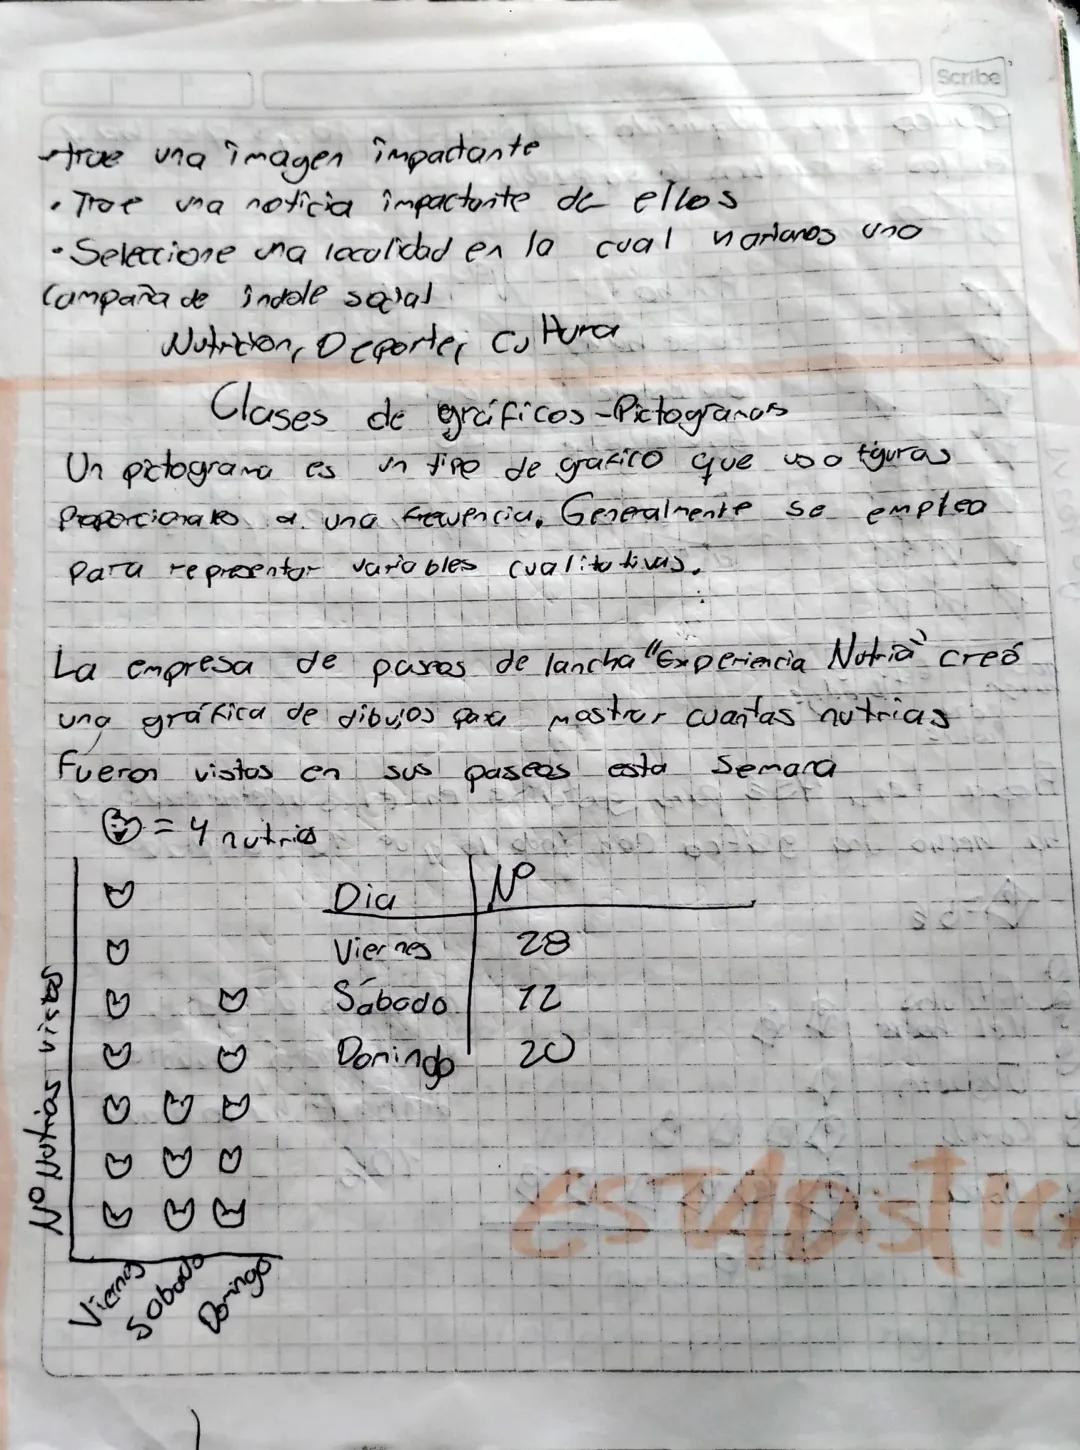 Scribe
trae una imagen impactante
• Trae una noticia impactante de ellos
• Seleccione una localidad en la cual una
Campaña de índole social
Nutricion, Deporte, Cultura
Clases de gráficos - Pictogramas
Un pictograma es un tipo de grafico que usa figuras
Proporcionales a una frecuencia. Generalmente se emplea
para representar variables cualitativas.
La empresa de paseos de lancha "Experiencia Nutria" creó
una gráfica de dibujos para mostrar cuantas nutrias
Fueron vistas en sus paseos esta Semana
= 4 nutrias
Dia Nº
Viernes 28
Sábado 12
Domingo 20
Nº Nutrias vistas
Viernes
Sabado
Domingo
ESTADISTIC